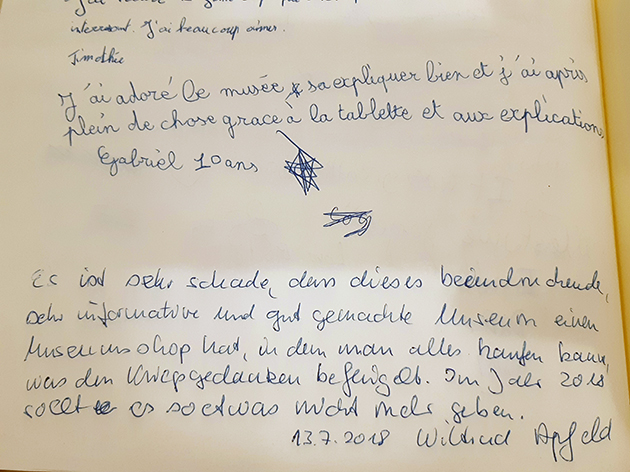 interessant. J'ai beaucoup aimer.
Timothée
J'ai adoré le musée sa expliquer bien et j'ai apris
plein de chose grace à la tablette et aux explications
Gabriel 10 ans
Es ist sehr schade, dass dieses beeindruckende,
sehr informative und gut gemachte Museum einen
Museumsshop hat, in dem man alles kaufen kann,
was den Kriegsgedanken beflügelt. Im Jahr 2018
sollte es so etwas nicht mehr geben.
13.7.2018 Wiltrud Apfeld